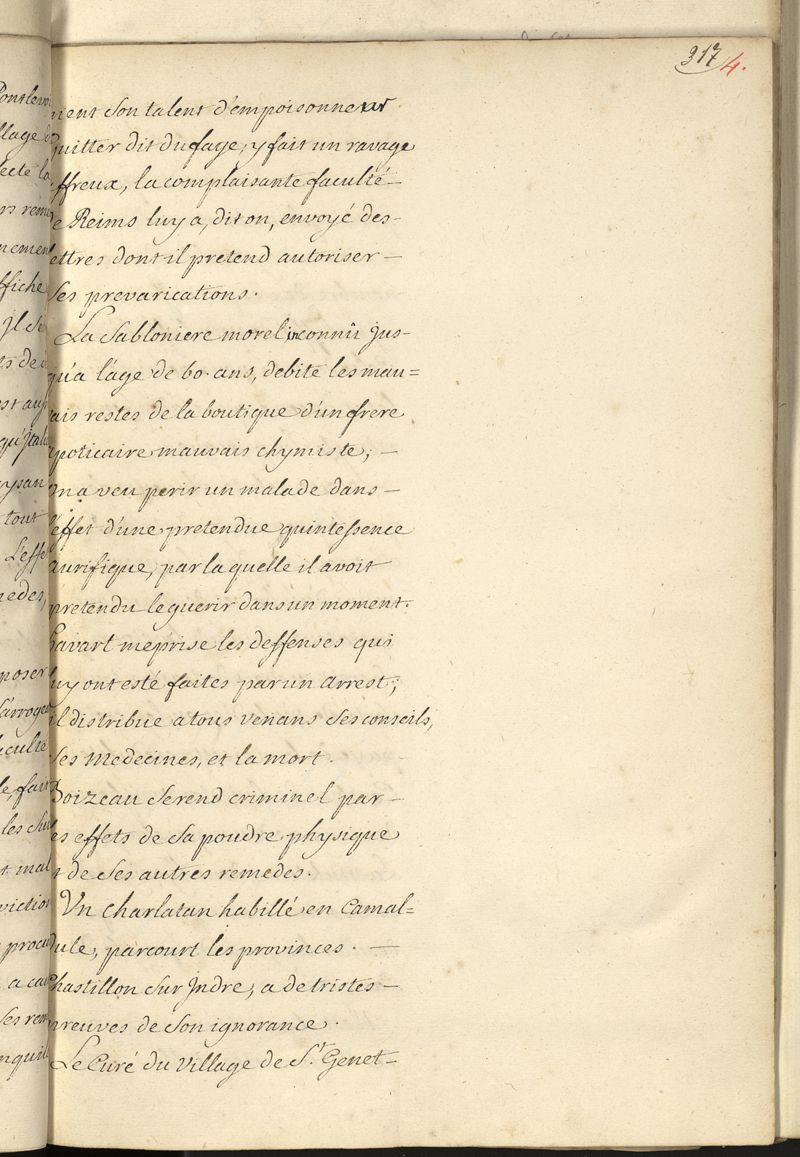 317 4.
nent son talent d'empoisonneur
quitter dit dufaye, y fait un ravage
ffreux, la complaisante faculté —
e Reims luy a, dit on, envoyé des-
ettres dont il pretend autoriser —
ses prevarications.
La Sabloniere morel inconnû jus-
qu'a l'age de 60. ans, debite les mau=
ais restes de la boutique d'un frere
poticaire mauvais chymiste; —
on a veu perir un malade dans —
effet d'une pretendue quintessence
aurifique, par la quelle il avoit
pretendu le guerir dans un moment.
avart meprise les deffenses qui
luy ont esté faites par un arrest;
il distribue a tous venans ses conseils,
ses medecines, et la mort.
Boizeau se rend criminel par —
es effets de sa poudre physique
t de ses autres remedes.
Un charlatan habillé en Camal=
dule, parcourt les provinces. —
Chastillon sur Indre, a de tristes —
preuves de son ignorance.
Le Curé du village de St. Genet —